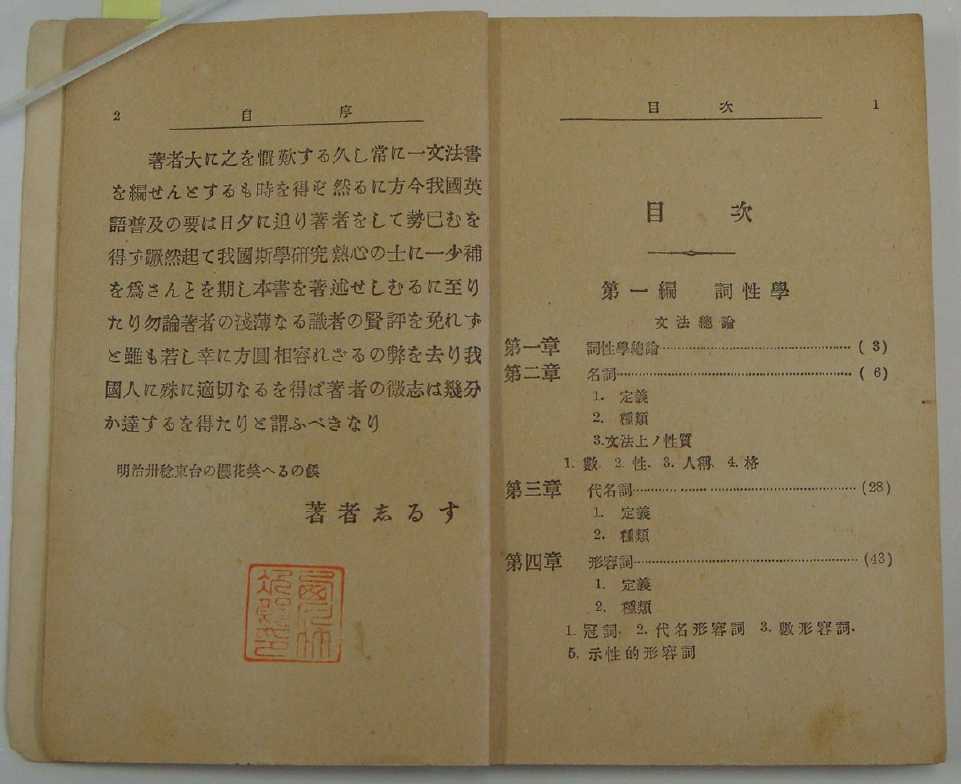 2 自序
著者大に之を慨歎する久し常に一文法書
を編せんとするも時を得ず然るに方今我國英
語普及の要は日夕に迫り著者をして勢已むを
得ず蹶然起て我國斯學研究熱心の士に一少補
を爲さんとを期し本書を著述せしむるに至り
たり勿論著者の淺薄なる識者の賢評を免れず
と雖も若し幸に方圓相容れざるの弊を去り我
國人に殊に適切なるを得ば著者の微志は幾分
か達するを得たりと謂ふべきなり
明治卅稔東台の櫻花笑へるの候
著者志るす
目次 1
目次
第一編 詞性學
文法總論
第一章 詞性學總論 (3)
第二章 名詞 (6)
1. 定義
2. 種類
3.文法上ノ性質
1. 數. 2. 性. 3. 人稱. 4. 格
第三章 代名詞 (28)
1. 定義
2. 種類
第四章 形容詞 (43)
1. 定義
2. 種類
1. 冠詞. 2. 代名形容詞 3. 數形容詞.
5. 示性的形容詞